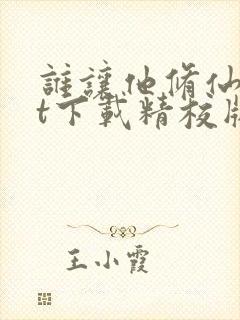 誰讓他脩仙
t下載精校版
王小霞